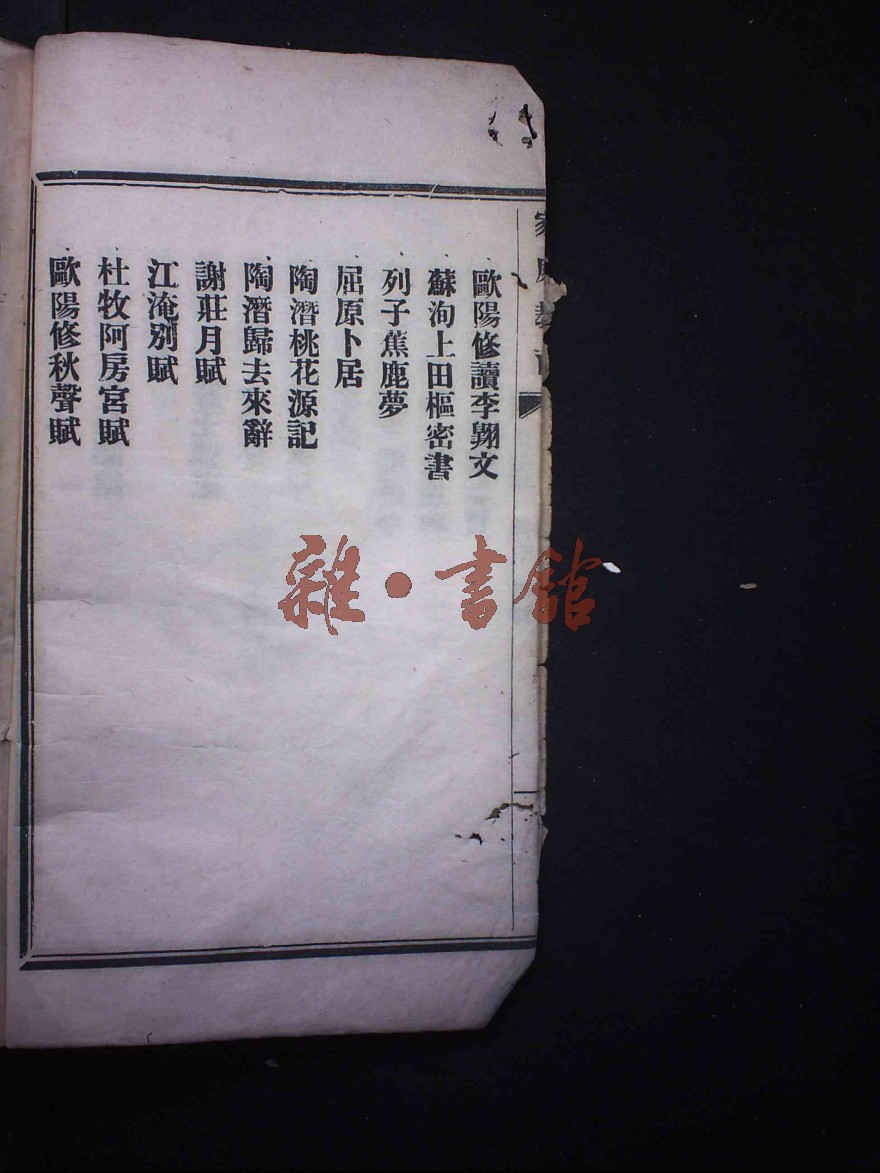 歐陽修讀李翺文
蘇洵上田樞密書
列子蕉鹿夢
屈原卜居
陶潛桃花源記
陶潛歸去來辭
謝莊月賦
江淹別賦
杜牧阿房宮賦
歐陽修秋聲賦
雜·書館